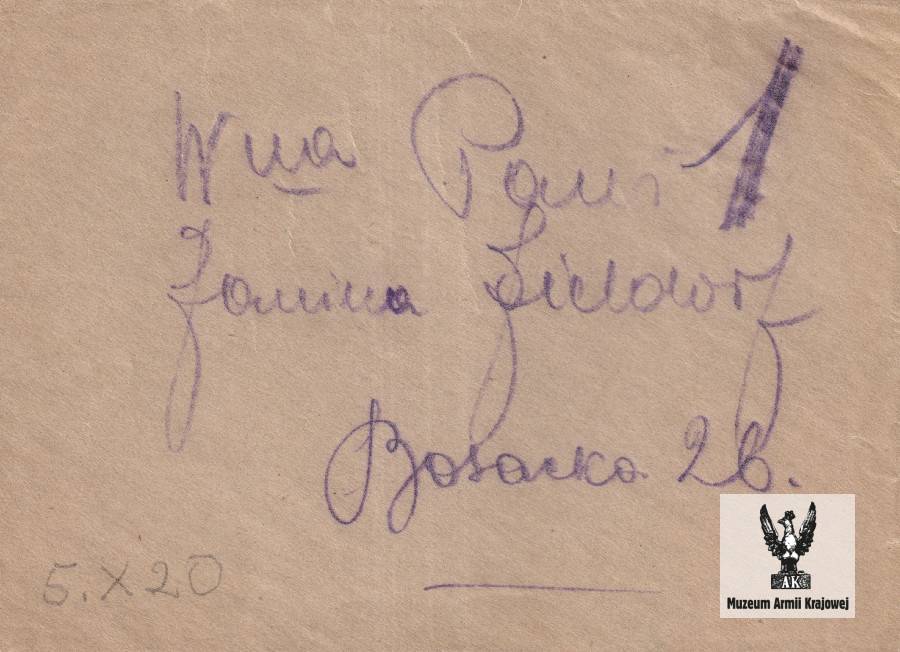 Wna Pani 1
Janina Fieldorf
Bosacka 26.
5.X20
AK
Muzeum Armii Krajowej